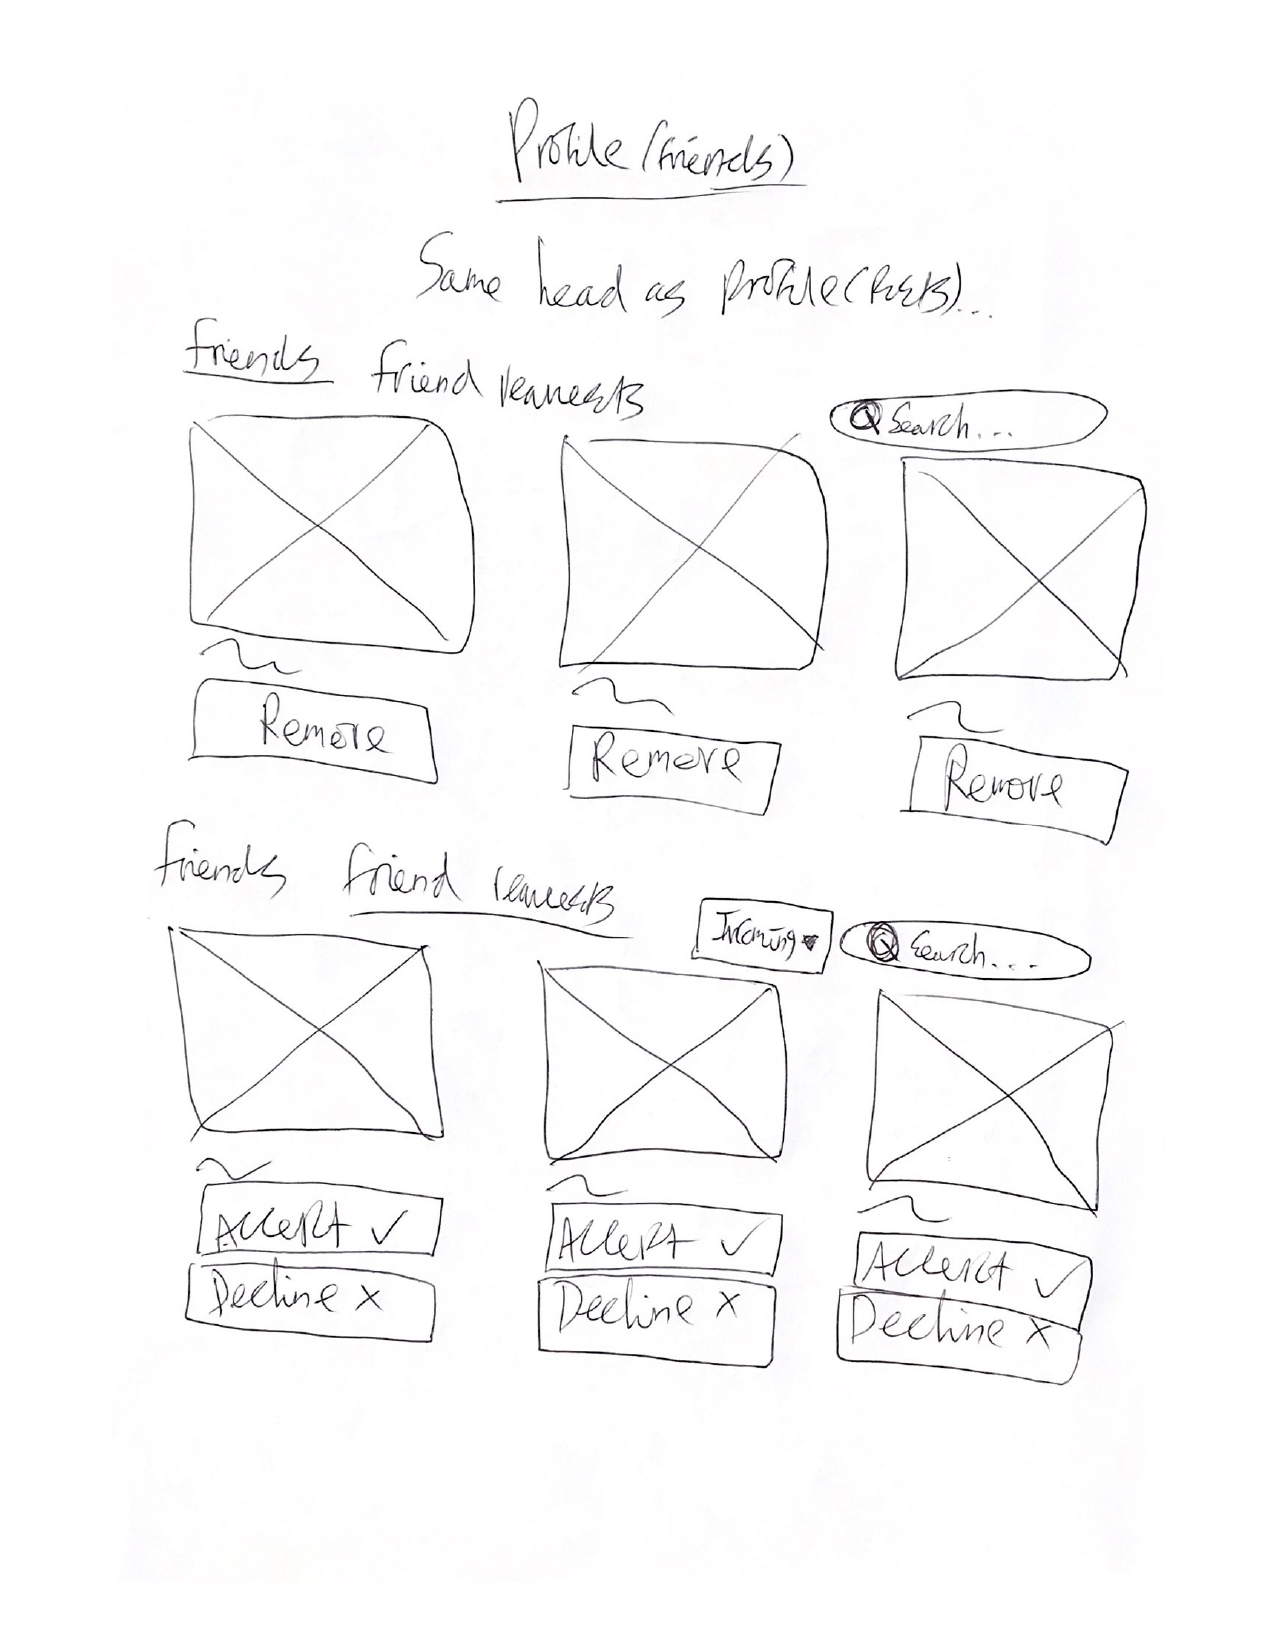 Profile (friends)
Same head as profile (Posts)...
friends friend requests
Search...
Remove Remove Remove
friends friend requests
Incoming Search...
Accept ✓ Accept ✓ Accept ✓
Decline x Decline x Decline x